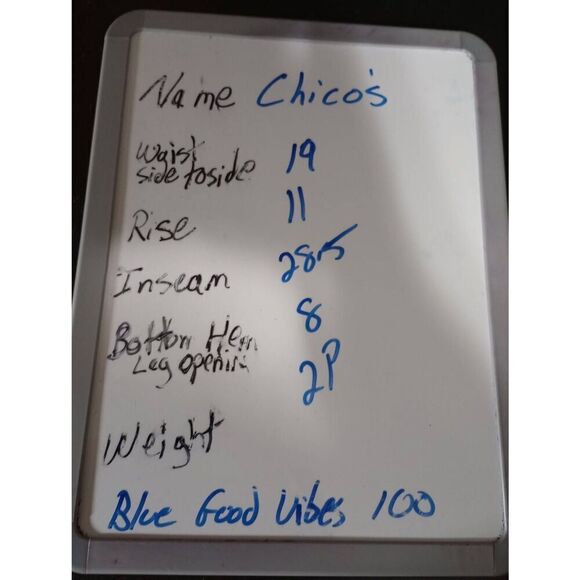 Name Chico's
Waist side to side 19
Rise 11
Inseam 28.5
Bottom Hem Leg opening 8
2P
Weight
Blue Good Vibes 100